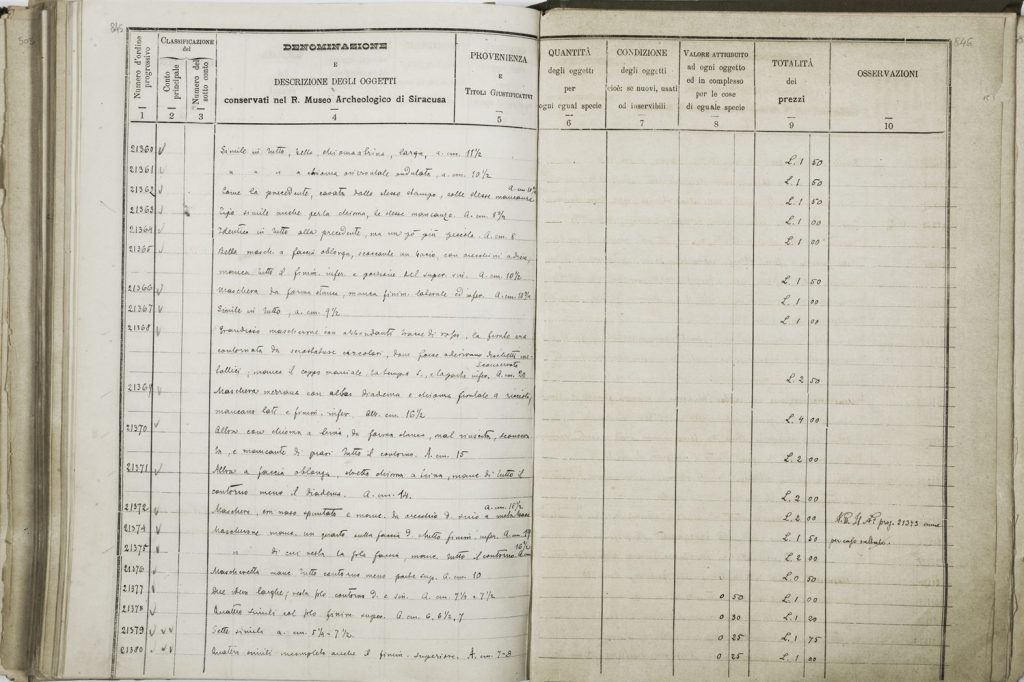 846
846
Numero d'ordine progressivo
Classificazione del
Conto principale
Numero del sotto conto
DENOMINAZIONE
E
DESCRIZIONE DEGLI OGGETTI
conservati nel R. Museo Archeologico di Siracusa
PROVENIENZA
E
Titoli Giustificativi
QUANTITÀ
degli oggetti
per
ogni egual specie
CONDIZIONE
degli oggetti
cioè: se nuovi, usati
od inservibili
Valore attribuito
ad ogni oggetto
od in complesso
per le cose
di eguale specie
TOTALITÀ
dei
prezzi
OSSERVAZIONI
1 2 3 4 5 6 7 8 9 10
21360 Simile in tutto, larga, a. cm. 11 ½ L. 1 50
21361 " " " a chioma orizzontale ondulata, a. cm. 10 ½ L. 1 50
21362 Come la precedente, cavata dallo stesso stampo, colle stesse mancanze A. cm. L. 1 50
21363 Tipo simile anche per la chioma, le stesse mancanze. A. cm. 8 ½ L. 1 00
21364 Identico in tutto alla precedente, ma un pò più piccola. A. cm. 8 L. 1 00
21365 Bella masch. a faccia oblonga, con orecchini a disco,
manca tutto il finim. infer. e porzione del super. sin. A. cm. 10 ½ L. 1 50
21366 Maschera da forma stanca, manca finim. laterale ed infer. A. cm. L. 1 00
21367 Simile in tutto, a. cm. 9 ½ L. 1 00
21368 Grandioso mascherone con abbondanti tracce di rosso, la fronte era
contornata da circolari, dove forse aderivano dischetti me-
tallici; manca il la tempia s., e la parte infer. A. cm. 20 L. 2 50
21369 Maschera mezzana con alto diadema e chioma frontale a riccioli,
mancano lati e finim. infer. Alt. cm. 16 ½ L. 4 00
21370 Altra con chioma a da forma stanca, mal riuscita,
e mancante di quasi tutto il contorno. A. cm. 15 L. 2 00
21371 Altra a faccia oblonga, chioma a manc. di tutto il
contorno meno il diadema. A. cm. 14. L. 2 00
21372 Maschera, con naso spuntato e manc. da orecchio d. A. cm. L. 2 00 N. B. Il N.º prog. 21373 venne
21374 Mascherone manc. un quarto sulla faccia d. finim. infer. A. cm. L. 1 50 per caso saltato.
21375 " " di cui resta la sola faccia, manc. tutto il contorno A. cm. L. 2 00
21376 Mascheretta manc. tutto contorno meno parte sup. A. cm. 10 L. 0 50
21377 Due larghe; resta solo contorno d. e sin. A. cm. 7 ½ 0 50 L. 1 00
21378 Quattro simili col solo finim. super. A. cm. 6, 6 ½, 7 0 30 L. 1 20
21379 Sette simili a. cm. 5 ½ - 7 ½ 0 25 L. 1 75
21380 Quattro simili incomplete anche il finim. superiore. A. cm. 7-8 0 25 L. 1 00